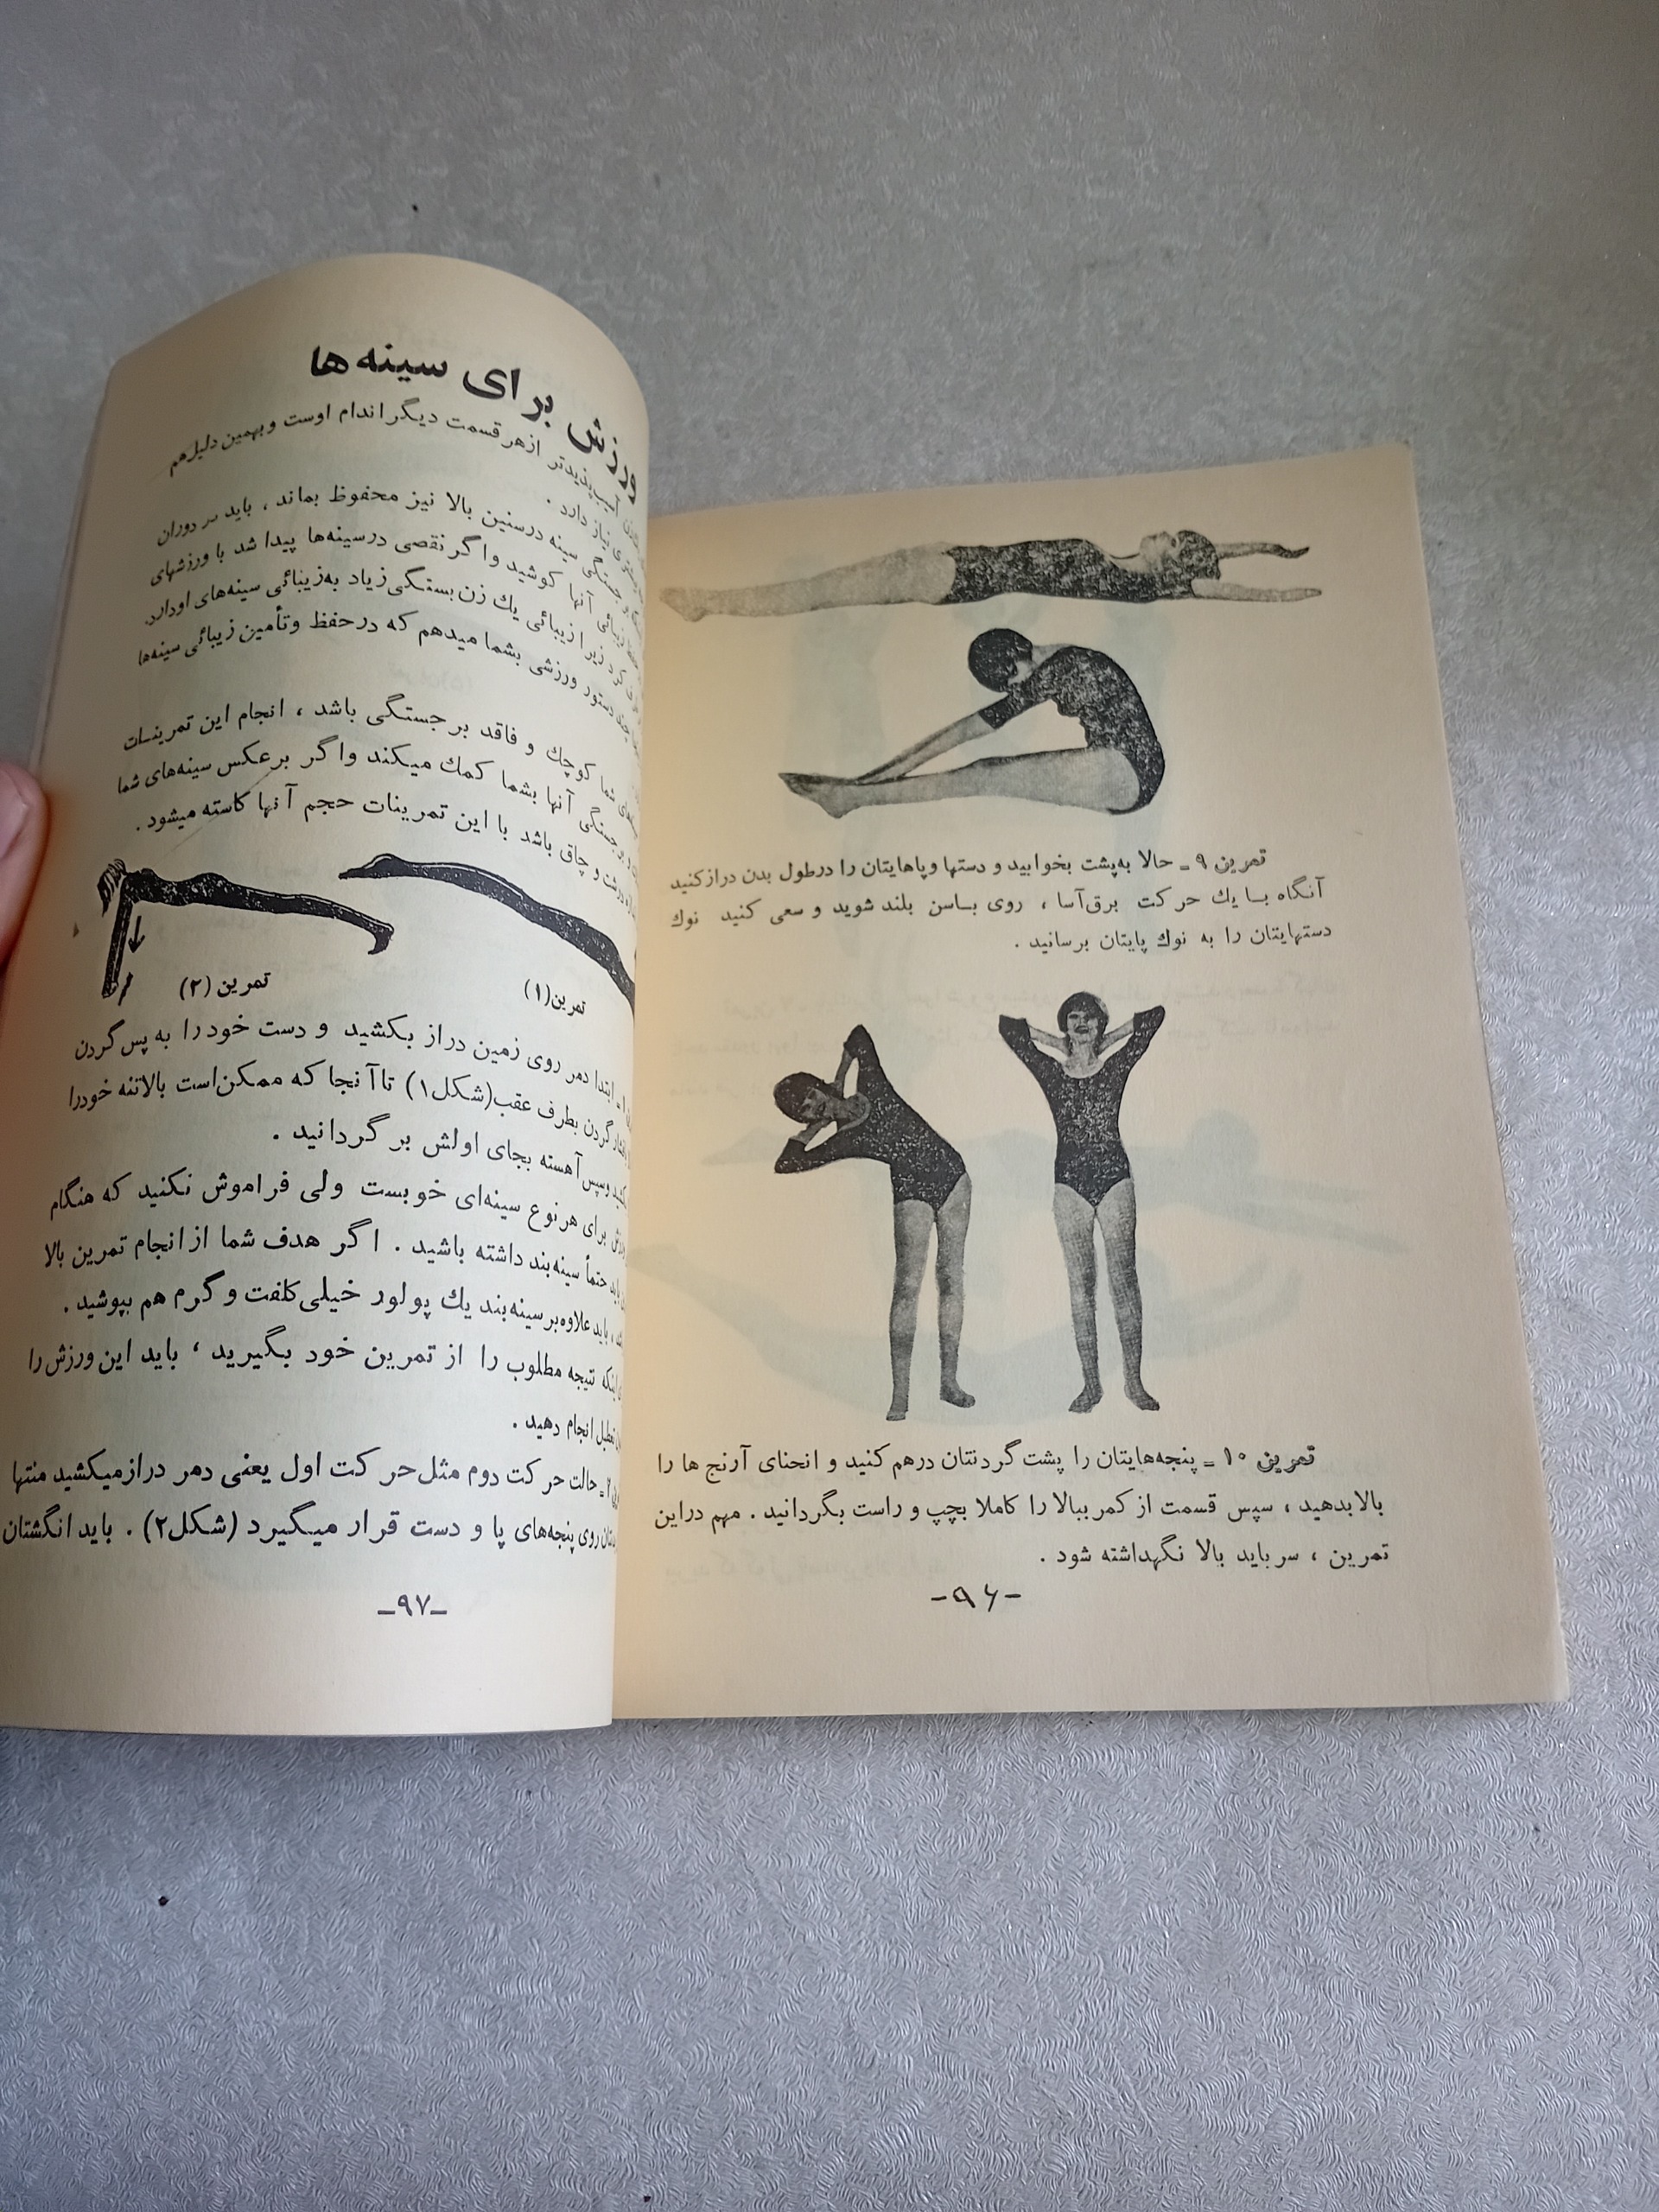 تمرین ۹ ـ حالا به‌پشت بخوابید و دستها و پاهایتان را درطول بدن درازکنید
آنگاه بـا یك حرکت برق‌آسا ، روی بـاسن بلند شوید و سعی کنید نوك
دستهایتان را به نوك پایتان برسانید .
تمرین ۱۰ ـ پنجه‌هایتان را پشت گردنتان درهم کنید و انحنای آرنج ها را
بالا بدهید ، سپس قسمت از کمر ببالا را کاملا بچپ و راست بگردانید . مهم دراین
تمرین ، سر باید بالا نگهداشته شود .
-۹۶-
ورزش برای سینه‌ها
آسیب‌پذیدتر ازهر قسمت دیگر اندام اوست و بهمین دلیل هم
نیاز دارد .
برجستگی سینه درسنین بالا نیز محفوظ بماند ، باید در دوران
زیبائی آنها کوشید و اگر نقصی درسینه‌ها پیدا شد با ورزشهای
کرد زیرا زیبائی یك زن بستگی زیاد به‌زیبائی سینه‌های او دارد.
دستور ورزشی بشما میدهم که درحفظ و تأمین زیبائی سینه‌ها
شما کوچك و فاقد برجستگی باشد ، انجام این تمرینـات
و برجستگی آنها بشما کمك میکند و اگر برعکس سینه‌های شما
درشت و چاق باشد با این تمرینات حجم آنها کاسته میشود .
تمرین(۱)
تمرین (۲)
ابتدا دمر روی زمین دراز بکشید و دست خود را به پس گردن
گردن بطرف عقب(شکل۱) تا آنجا که ممکن‌است بالاتنه خودرا
وسپس آهسته بجای اولش بر گردانید .
برای هرنوع سینه‌ای خوبست ولی فراموش نکنید که هنگام
حتماً سینه‌بند داشته باشید . اگر هدف شما از انجام تمرین بالا
باید علاوه‌برسینه‌بند یك پولور خیلی‌کلفت و گرم هم بپوشید .
نتیجه مطلوب را از تمرین خود بگیرید ، باید این ورزش را
انجام دهید .
۲ ـ حالت حرکت دوم مثل حرکت اول یعنی دمر درازمیکشید منتها
روی پنجه‌های پا و دست قرار میگیرد (شکل۲) . باید انگشتان
ـ۹۷ـ